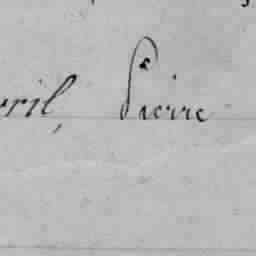 vril, Pierre